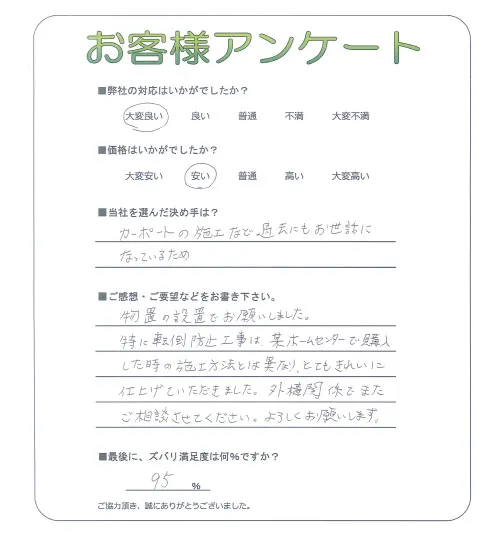 お客様アンケート
■弊社の対応はいかがでしたか？
大変良い 良い 普通 不満 大変不満
■価格はいかがでしたか？
大変安い 安い 普通 高い 大変高い
■当社を選んだ決め手は？
カーポートの施工などで過去にもお世話に
なっているため
■ご感想・ご要望などをお書き下さい。
物置の設置でお願いしました。
特に転倒防止工事は、某ホームセンターで購入
した時の施工方法とは異なり、とてもきれいに
仕上げていただきました。外構関係でまた
ご相談させてください。よろしくお願いします。
■最後に、ズバリ満足度は何%ですか？
95 %
ご協力頂き、誠にありがとうございました。